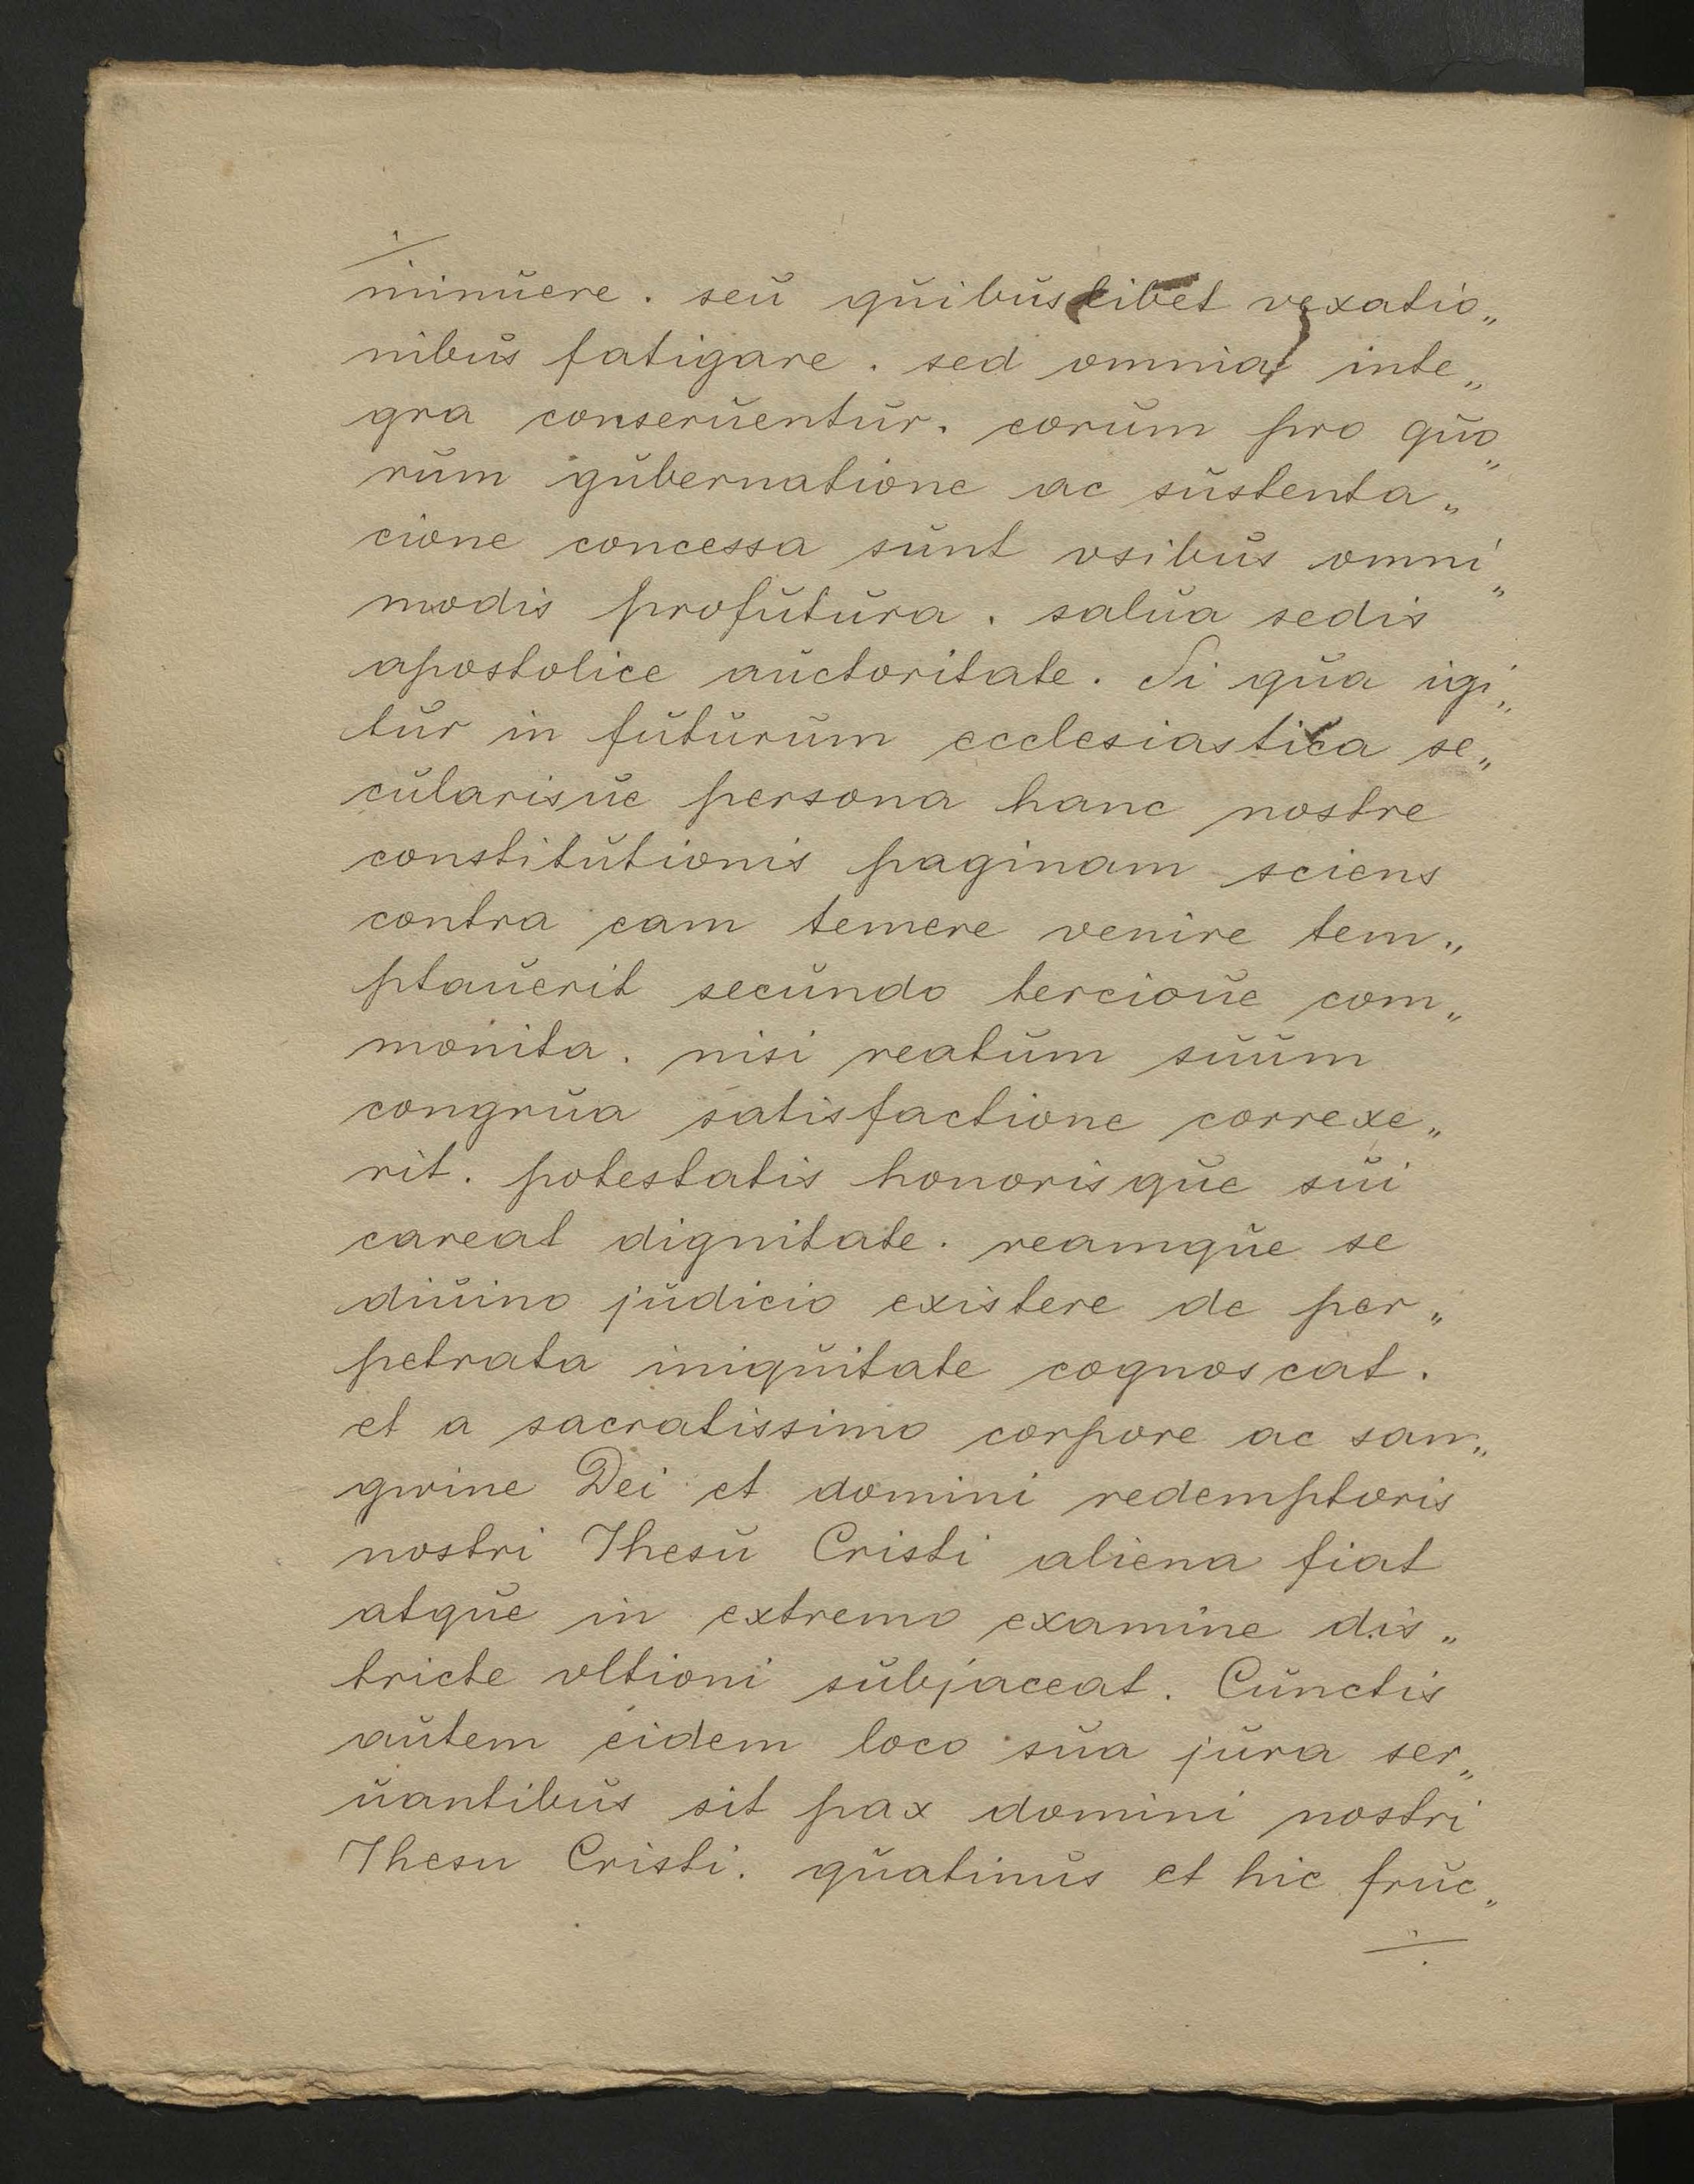 ./.
minuere. seu quibuslibet vexatio„
nibus fatigare. sed omnia inte„
gra conseruentur. eorum pro quo„
rum gubernatione ac sustenta„
cione concessa sunt vsibus omni„
modis profutura. salua sedis
apostolice auctoritate. Si qua igi„
tur in futurum ecclesiastica se„
cularisue persona hanc nostre
constitutionis paginam sciens
contra eam temere venire tem„
ptauerit secundo tercioue com„
monita. nisi reatum suum
congrua satisfactione correxe„
rit. potestatis honorisque sui
careat dignitate. reamque se
diuino judicio existere de per„
petrata iniquitate cognoscat.
et a sacratissimo corpore ac san„
gwine Dei et domini redemptoris
nostri Jhesu Cristi aliena fiat
atque in extremo examine dis„
tricte vltioni subjaceat. Cunctis
autem eidem loco sua jura ser„
uantibus sit pax domini nostri
Jhesu Cristi. quatinus et hic fruc„
./.